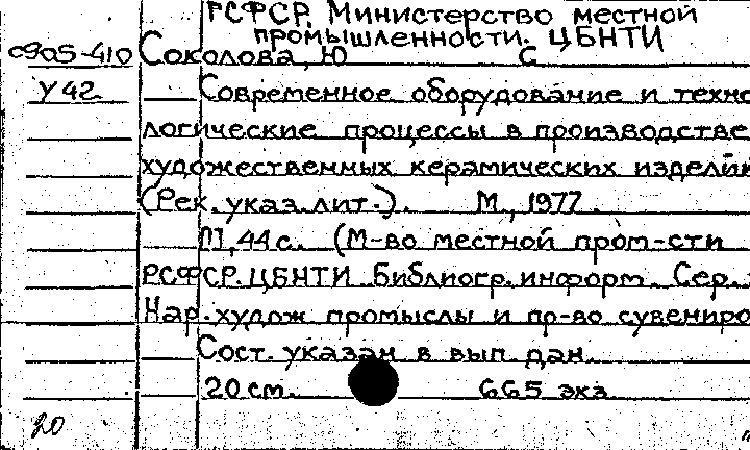 РСФСР. Министерство местной
промышленности. ЦБНТИ
с905-410 Соколова, Ю С
У42 Современное оборудование и техно
логические процессы в производстве
художественных керамических изделий
(Рек. указ. лит.). М., 1977.
44 с. (М-во местной пром-сти
РСФСР. ЦБНТИ Библиогр. информ. Сер.
Нар. худож промыслы и пр-во сувениро
Сост. указан в вып. дан.
20 см. 665 экз.
20